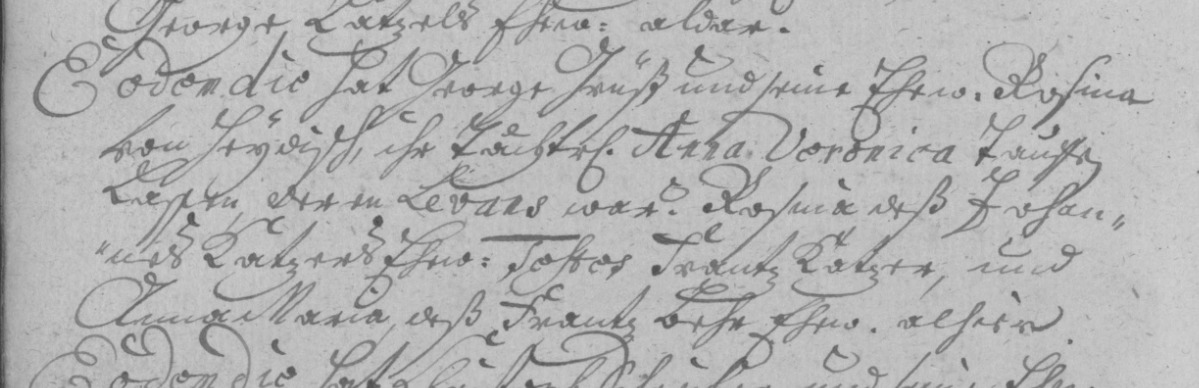 George Katzels Ehew: aldar.
Eodem die hat George Heüß und seine Ehew. Rosina
von Heydisch, ihr Töchterl. Anna Veronica tauffen
lassen, deren Levans war. Rosina deß Johan-
nes Katzers Ehew: Testes Frantz Katzer, und
Anna Maria, deß Frantz Behr Ehew. alhier
Eodem die hat und seine